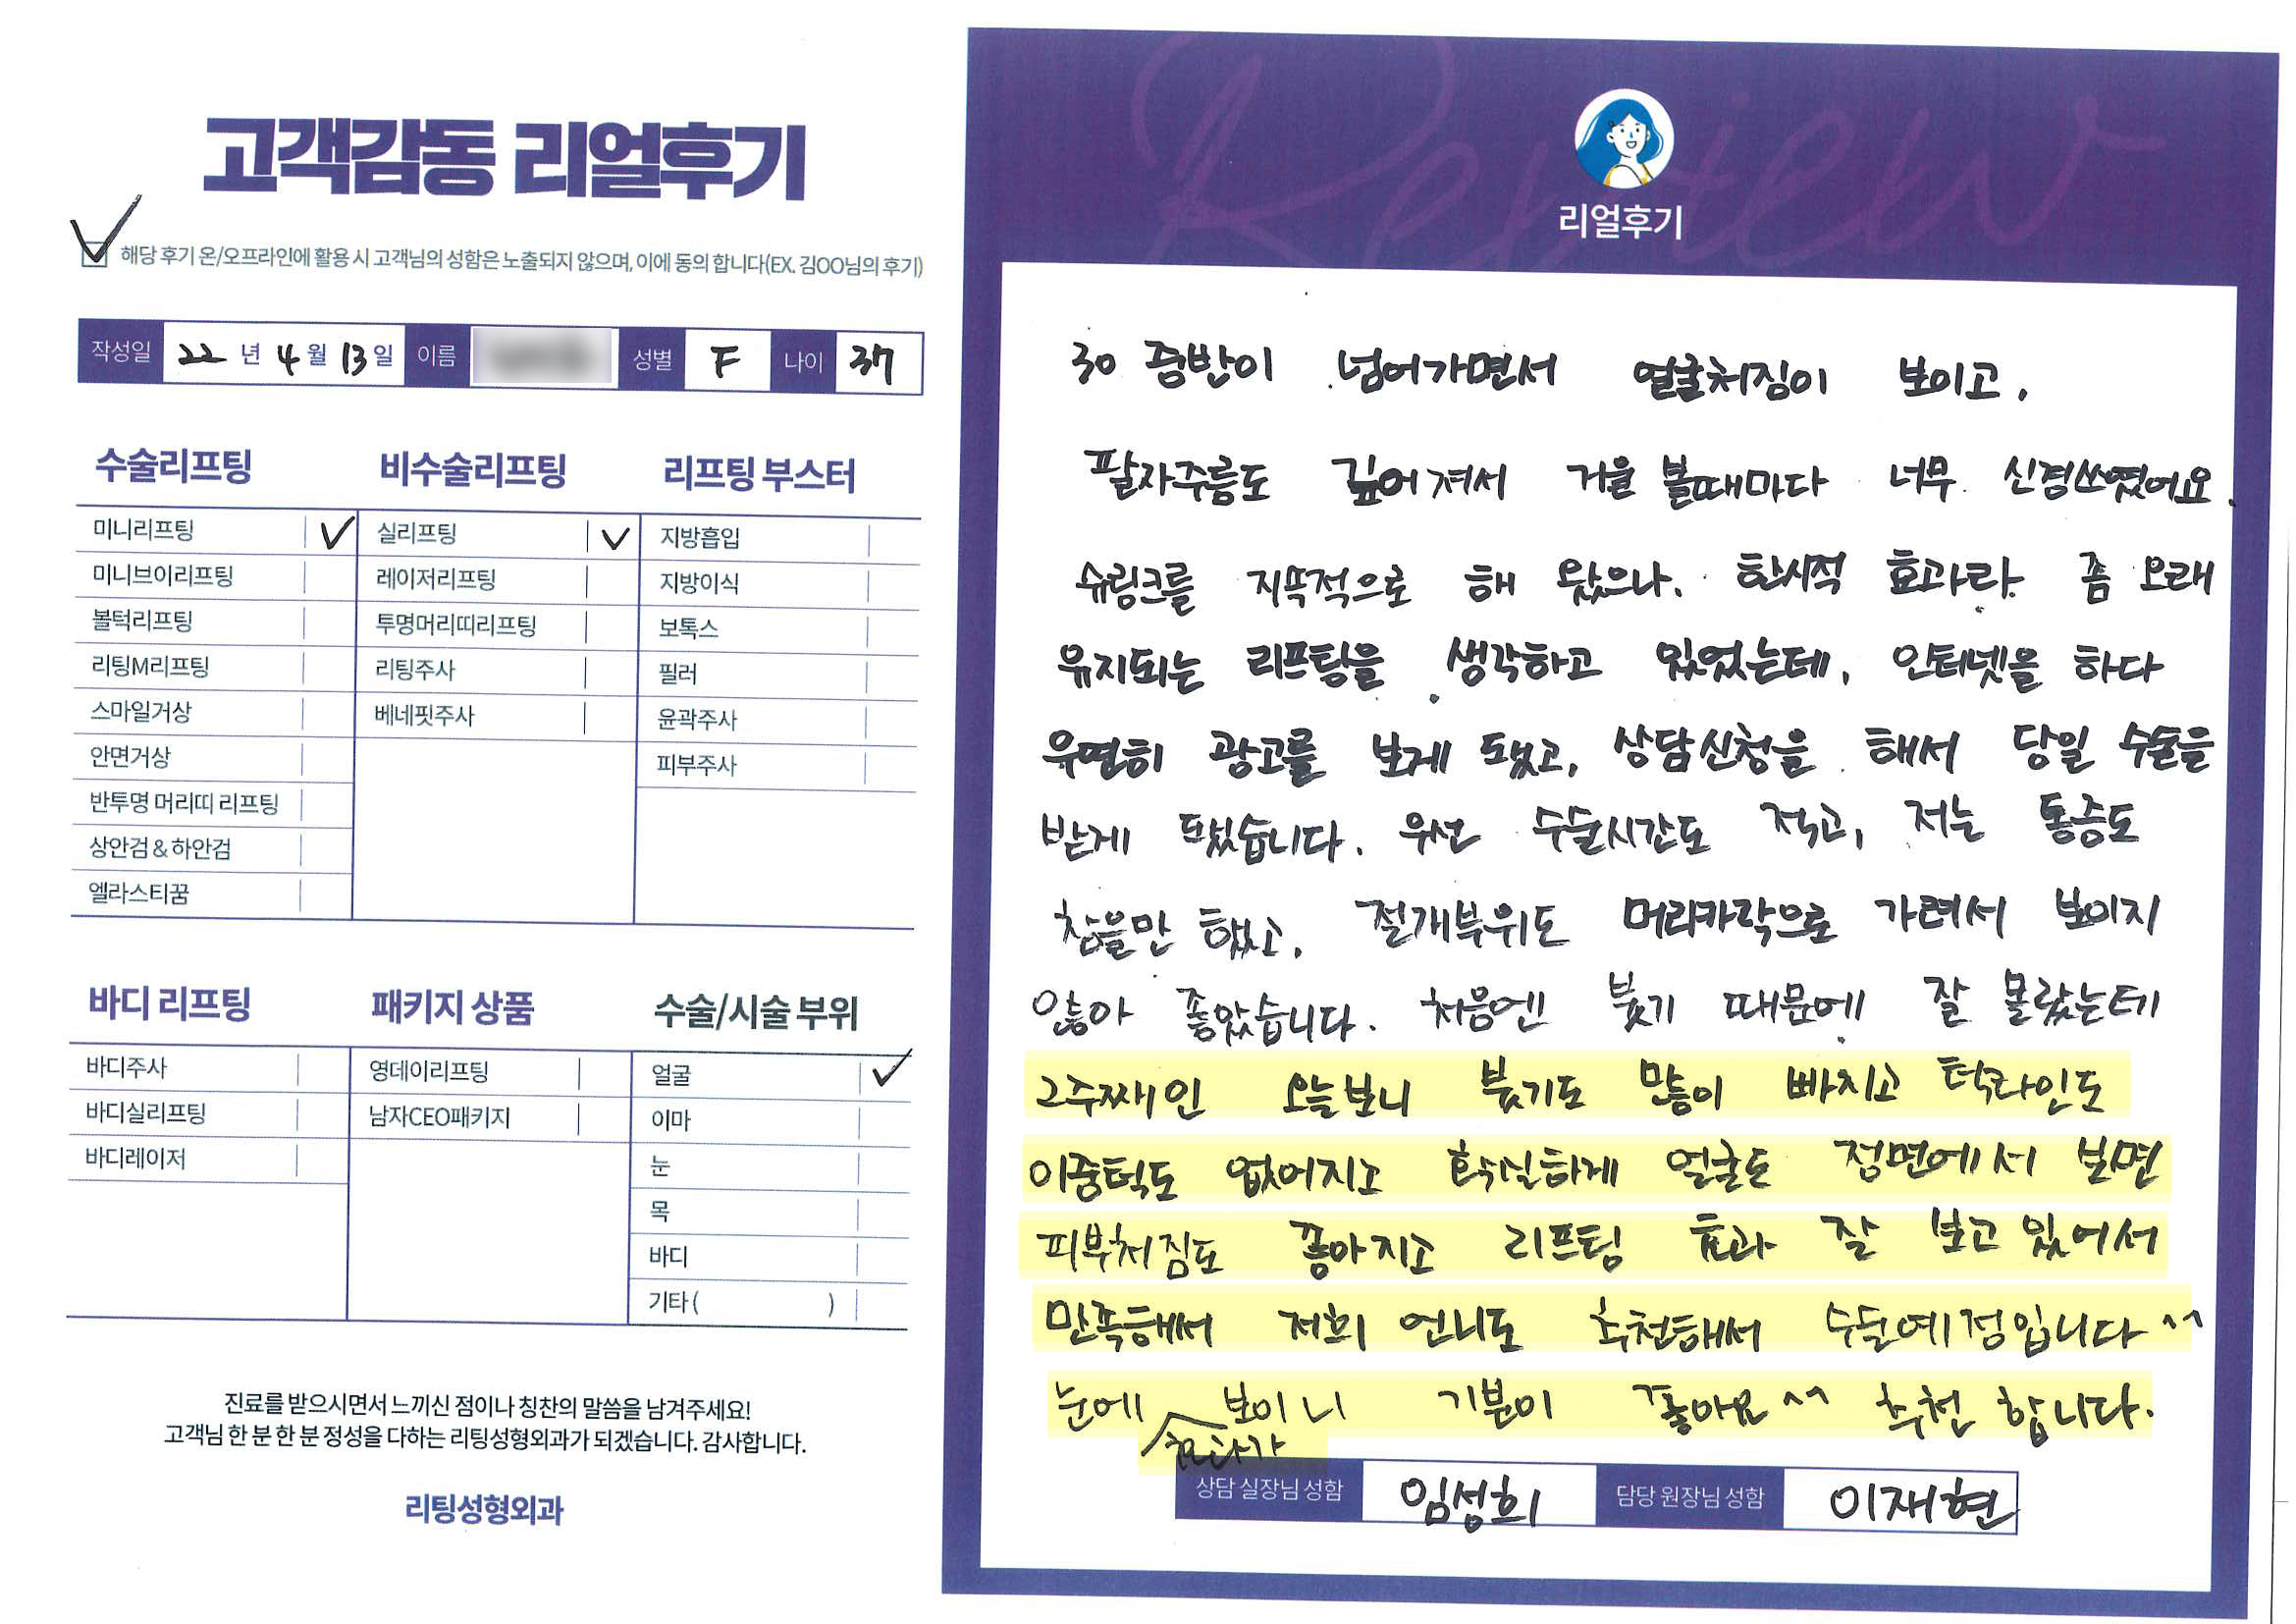 고객감동 리얼후기
해당 후기 온/오프라인에 활용 시 고객님의 성함은 노출되지 않으며, 이에 동의 합니다(EX. 김OO님의 후기)
작성일 22년 4월 13일 이름 성별 F 나이 37
수술리프팅
미니리프팅 ✓
미니브이리프팅
볼턱리프팅
리팅M리프팅
스마일거상
안면거상
반투명 머리띠 리프팅
상안검 & 하안검
엘라스티꿈
비수술리프팅
실리프팅 ✓
레이저리프팅
투명머리띠리프팅
리팅주사
베네핏주사
리프팅 부스터
지방흡입
지방이식
보톡스
필러
윤곽주사
피부주사
바디 리프팅
바디주사
바디실리프팅
바디레이저
패키지 상품
영데이리프팅
남자CEO패키지
수술/시술 부위
얼굴 ✓
이마
눈
목
바디
기타 ( )
진료를 받으시면서 느끼신 점이나 칭찬의 말씀을 남겨주세요!
고객님 한 분 한 분 정성을 다하는 리팅성형외과가 되겠습니다. 감사합니다.
리팅성형외과
Review
리얼후기
30 중반이 넘어가면서 얼굴처짐이 보이고,
팔자주름도 깊어져서 거울 볼때마다 너무 신경쓰였어요.
슈링크를 지속적으로 해 왔으나, 한시적 효과라 좀 오래
유지되는 리프팅을 생각하고 있었는데, 인터넷을 하다
우연히 광고를 보게 됐고, 상담신청을 해서 당일 수술을
받게 됐습니다. 우선 수술시간도 적고, 저는 통증도
참을만 했고, 절개부위도 머리카락으로 가려서 보이지
않아 좋았습니다. 처음엔 붓기 때문에 잘 몰랐는데
2주째인 오늘보니 붓기도 많이 빠지고 턱라인도
이중턱도 없어지고 확실하게 얼굴도 정면에서 보면
피부처짐도 좋아지고 리프팅 효과 잘 보고 있어서
만족해서 저희 언니도 추천해서 수술예정입니다^^
눈에 변화가 보이니 기분이 좋아요^^ 추천 합니다.
상담 실장님 성함 임성희 담당 원장님 성함 이재현